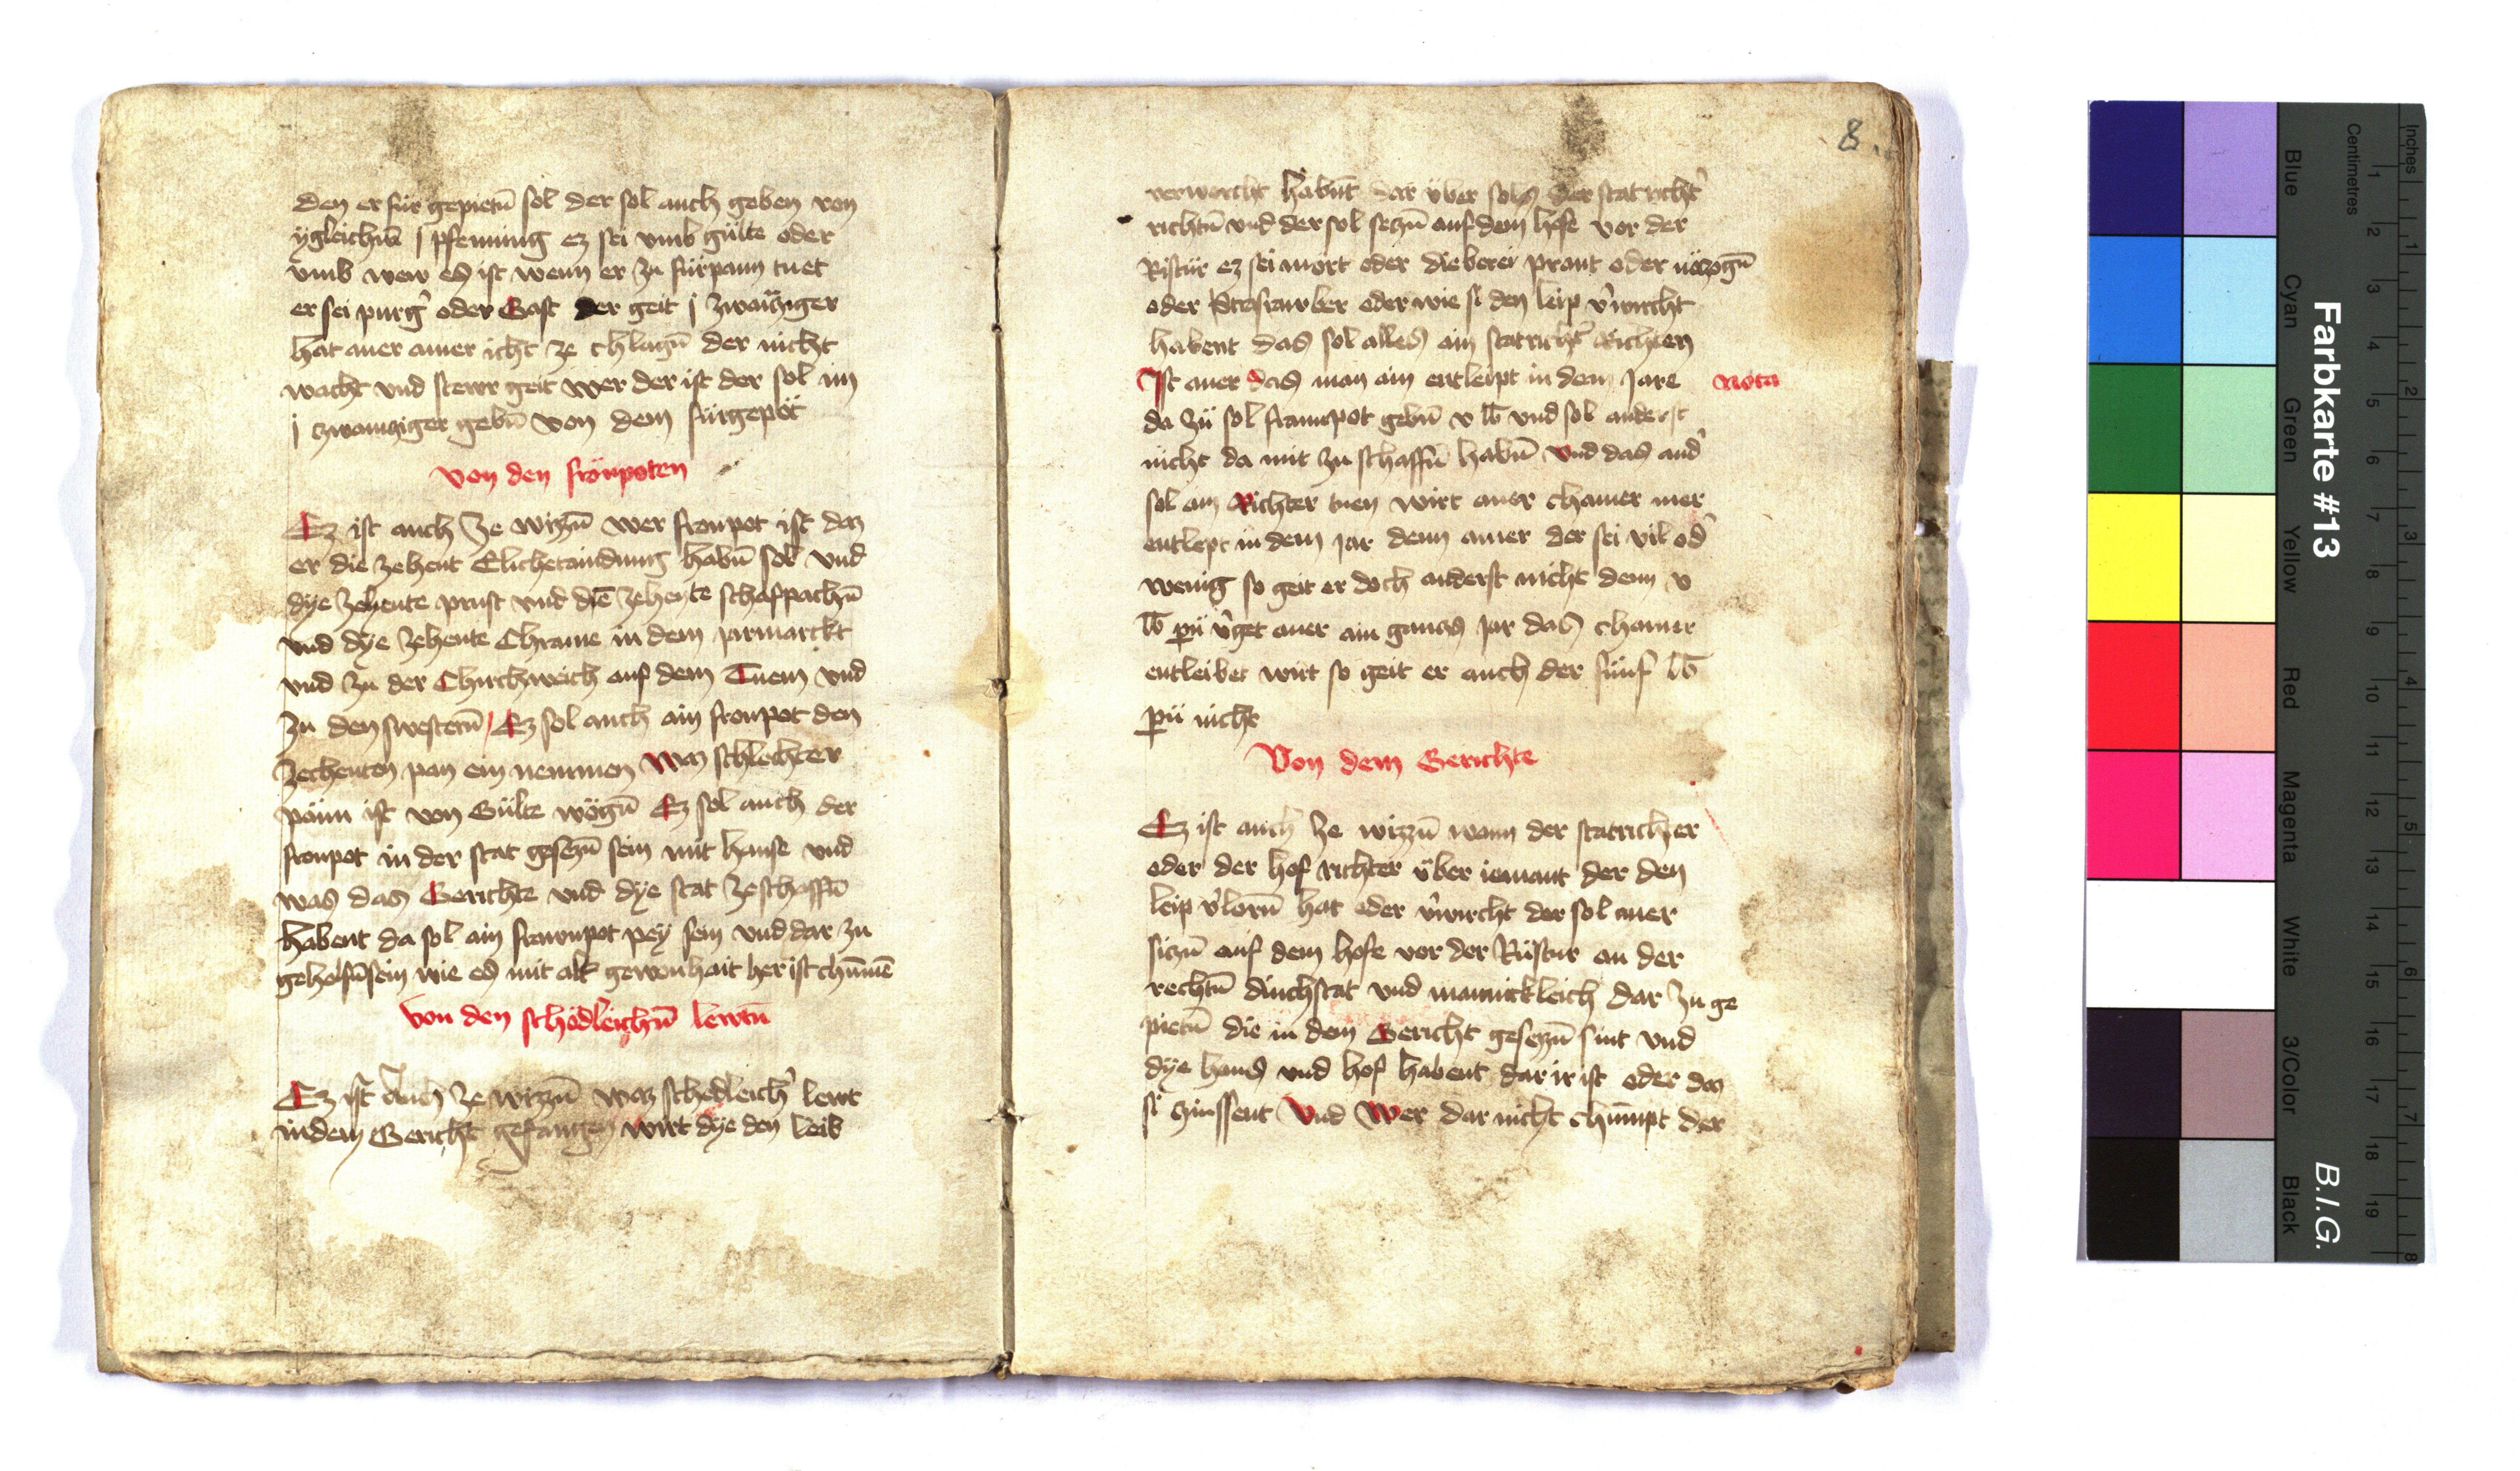 den er für gepietn̄ sol der sol auch geben von
ygleichm̄ j pfenning ez sei vmb gülte oder
vmb wew es ist wenn er zu fürpann tuet
er sei purg' oder Gast Der geit j zwainziger
hat auer ainer icht ze chlagn̄ der nicht
wacht vnd stewr geit wer der ist der sol im
j zwainziger gebn̄ von dem fürgepöt
Von den fronpoten
Ez ist auch ze wizzn̄ wer fronpot ist daz
er die zehent habn̄ sol vnd
dye zehente prust vnd die zehente schafpachn̄
vnd dye zehente Chrame in dem jarmarckt
vnd zu der Chirchweich auf dem Tuem vnd
zu den swestern̄ / Ez sol auch ain fronpot den
zechenten pan ein nemmen Waz schlechter
pänn ist von Gülte wögn̄ Ez sol auch der
fronpot in der stat gesezn̄ sein mit hause vnd
was das Gerichte vnd dye stat ze schaffn̄
habent da sol ain frawnpot pey sein vnd dar zu
geholfn̄ sein wie es mit alt gewonhait her ist chūmē
Von den schedleichn̄ lewtn̄
Ez ist Auch ze wizzn̄ waz schedleich' lewt
in dem Gericht gefangen wirt dye den leib
8.
verworcht habn̄t dar über sol der stat richt'
richtn̄ vnd der sol sizn̄ auf dem hofe vor der
Ristür ez sei mort oder dieberei prant oder nötzogn̄
oder Strasrawber oder wie si den leip v'wurcht
habent das sol alles ain statricht' Richten
Ist auer das man ain entleipt in dem Jare nota
da zu sol frawnpot gebn̄ v lb vnd sol anderst
nicht da mit zu schaffn̄ habn̄ Vnd das and'
sol ain Richter tuen wirt auer chainer mer
entlept in dem jar denn ainer der sei vil od'
wenig so geit er doch anderst nicht denn v
lb pn̄ v'get auer ain gancz jar das chainer
entleibet wirt so geit er auch der fünf lb
pn̄ nicht
Von dem Gerichte
Ez ist auch ze wizzn̄ wann der statrichter
oder der hof richter über iemant der den
leip v'lorn̄ hat oder v'wurcht der sol auer
sizn̄ auf dem hofe vor der Rüstur an der
rechtn̄ dinchstat vnd mannickleich dar zu ge
pietn̄ die in dem Gericht gesezn̄ sint vnd
dye haus vnd hof habent dar ir ist oder daz
si zinssent Vnd Wer dar nicht chümpt der
Farbkarte #13
B.I.G.
Centimetres
Inches
Blue
Cyan
Green
Yellow
Red
Magenta
White
3/Color
Black
1 2 3 4 5 6 7 8 9 10 11 12 13 14 15 16 17 18 19
1 2 3 4 5 6 7 8